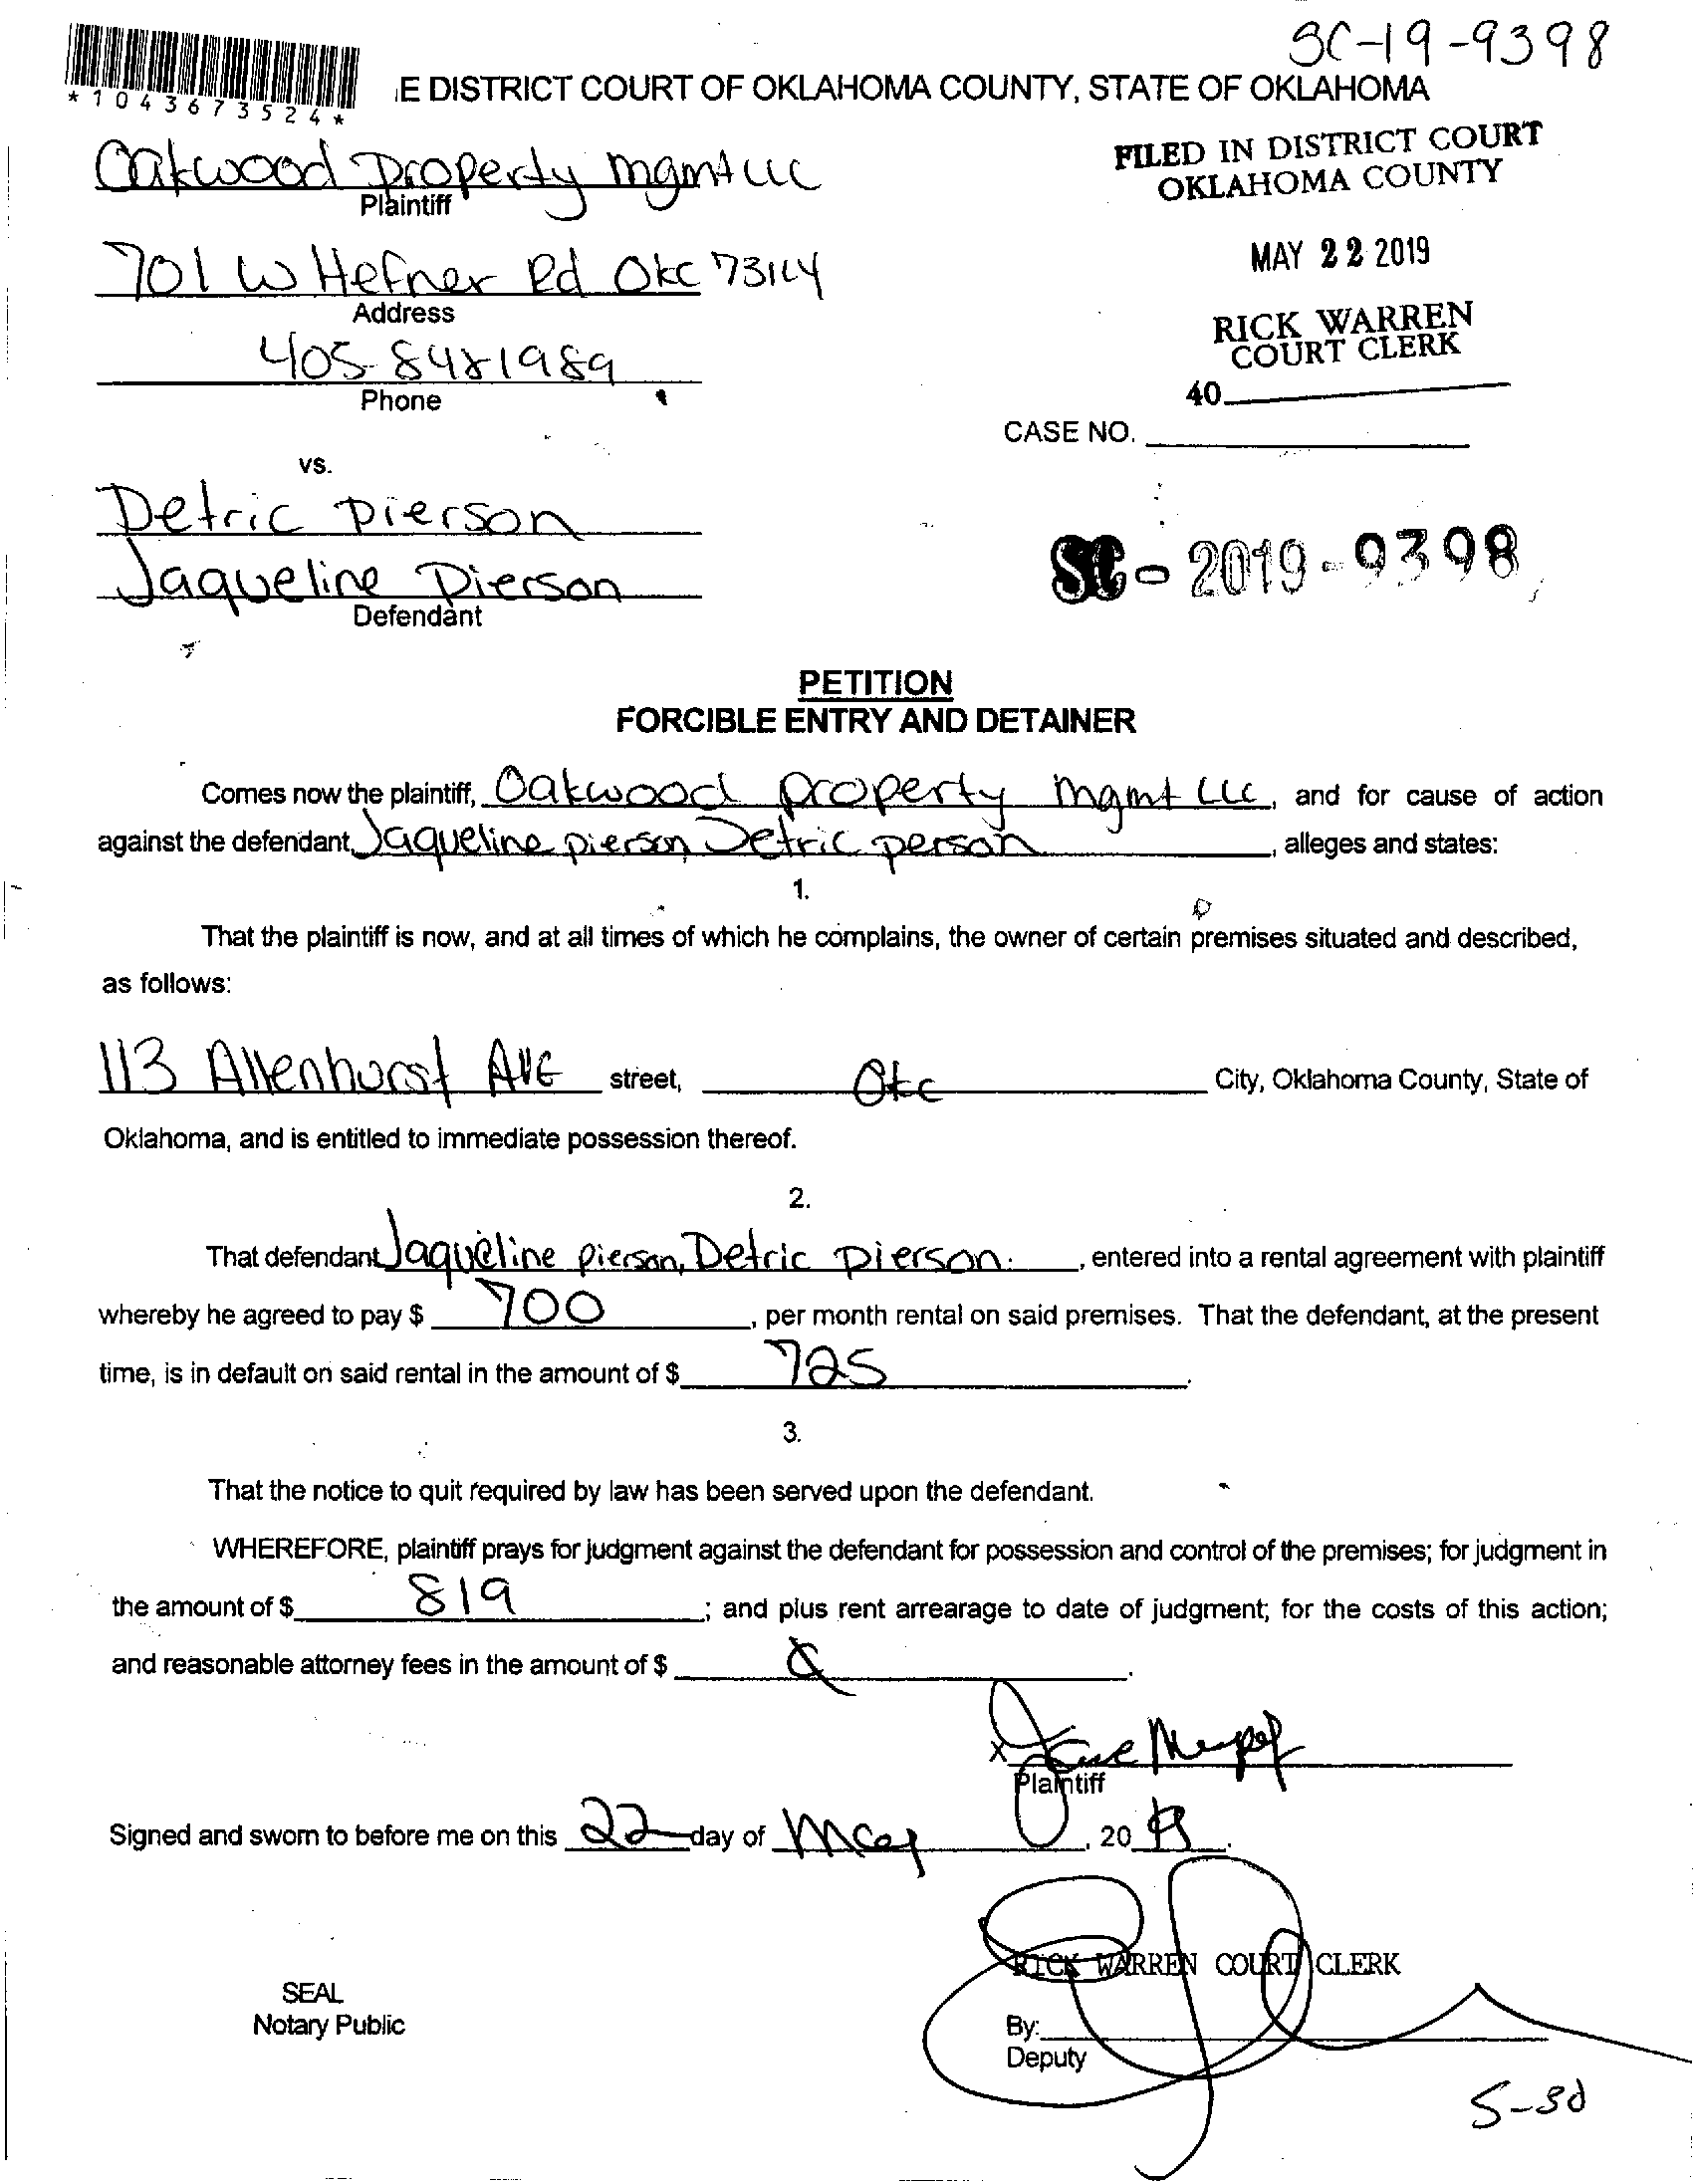 SC-19-9398
*1043673524*
E DISTRICT COURT OF OKLAHOMA COUNTY, STATE OF OKLAHOMA
Oakwood Property mgmt LLC
Plaintiff
FILED IN DISTRICT COURT
OKLAHOMA COUNTY
701 W Hefner Rd Okc 73114
Address
MAY 22 2019
RICK WARREN
COURT CLERK
405-8481989
Phone
40
CASE NO.
vs.
Detric Pierson
Jaqueline Pierson
Defendant
SC - 2019 - 9398
PETITION
FORCIBLE ENTRY AND DETAINER
Comes now the plaintiff, Oakwood property mgmt LLC, and for cause of action
against the defendant, Jaqueline pierson, Detric person, alleges and states:
1.
That the plaintiff is now, and at all times of which he complains, the owner of certain premises situated and described,
as follows:
113 Allenhurst AVE street, Okc City, Oklahoma County, State of
Oklahoma, and is entitled to immediate possession thereof.
2.
That defendant Jaqueline pierson, Detric Pierson, entered into a rental agreement with plaintiff
whereby he agreed to pay $ 700, per month rental on said premises. That the defendant, at the present
time, is in default on said rental in the amount of $ 725.
3.
That the notice to quit required by law has been served upon the defendant.
WHEREFORE, plaintiff prays for judgment against the defendant for possession and control of the premises; for judgment in
the amount of $ 819; and plus rent arrearage to date of judgment; for the costs of this action;
and reasonable attorney fees in the amount of $
x
Plaintiff
Signed and sworn to before me on this 22 day of May, 20 19.
RICK WARREN COURT CLERK
SEAL
Notary Public
By:
Deputy
5-30